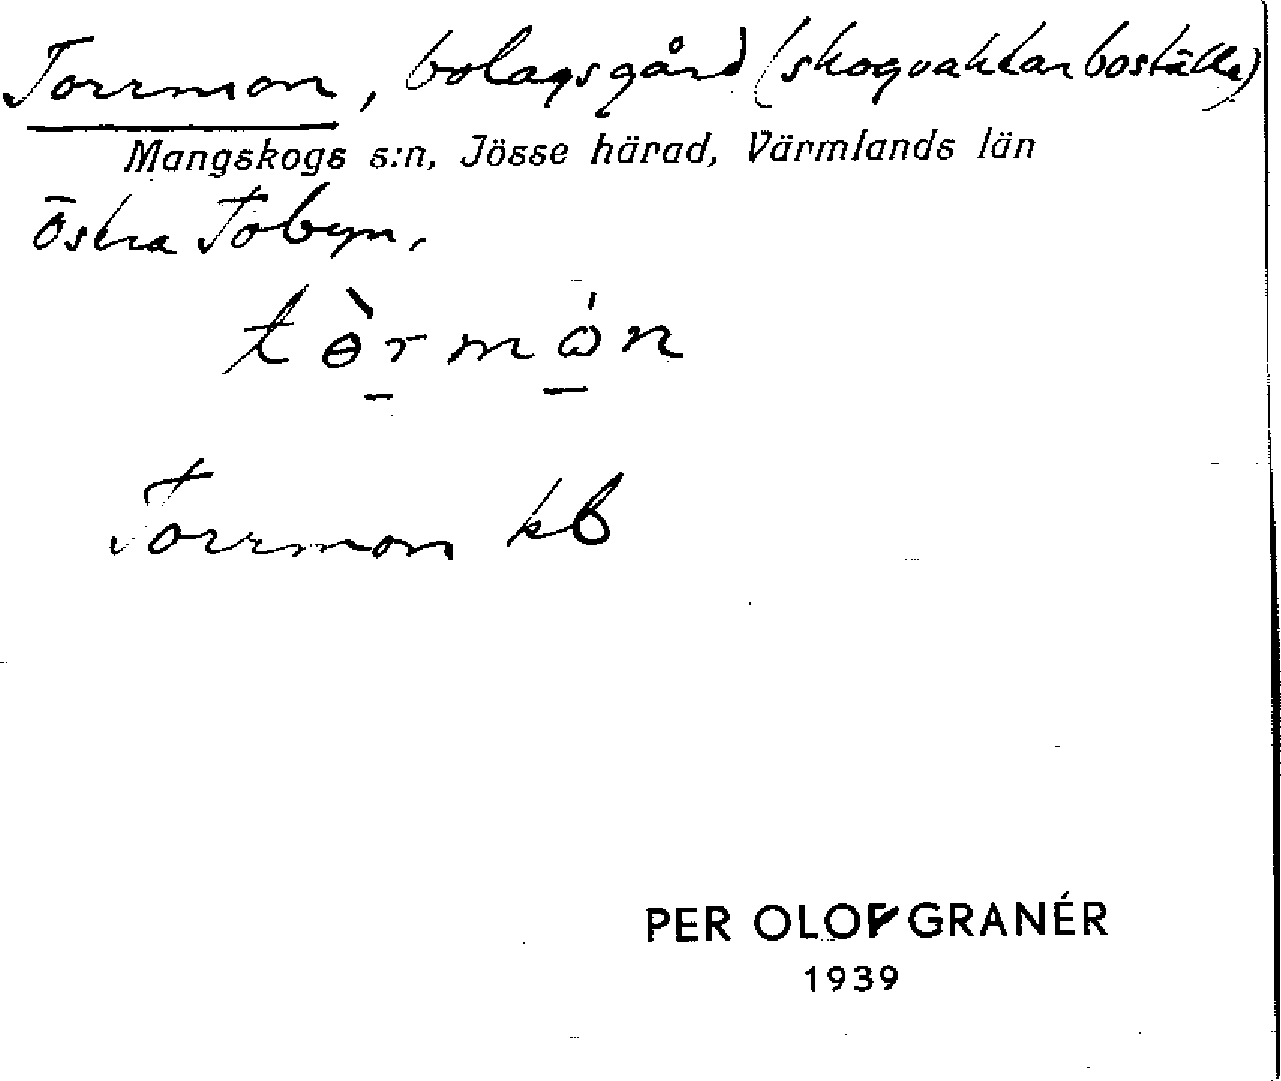 Torrmon, bolagsgård (skogvaktarboställe)
Mangskogs s:n, Jösse härad, Värmlands län
Östra Tobyn,
tɵ̀r̠mɷ̠́n
Torrmon kb
PER OLOF GRANÉR
1939